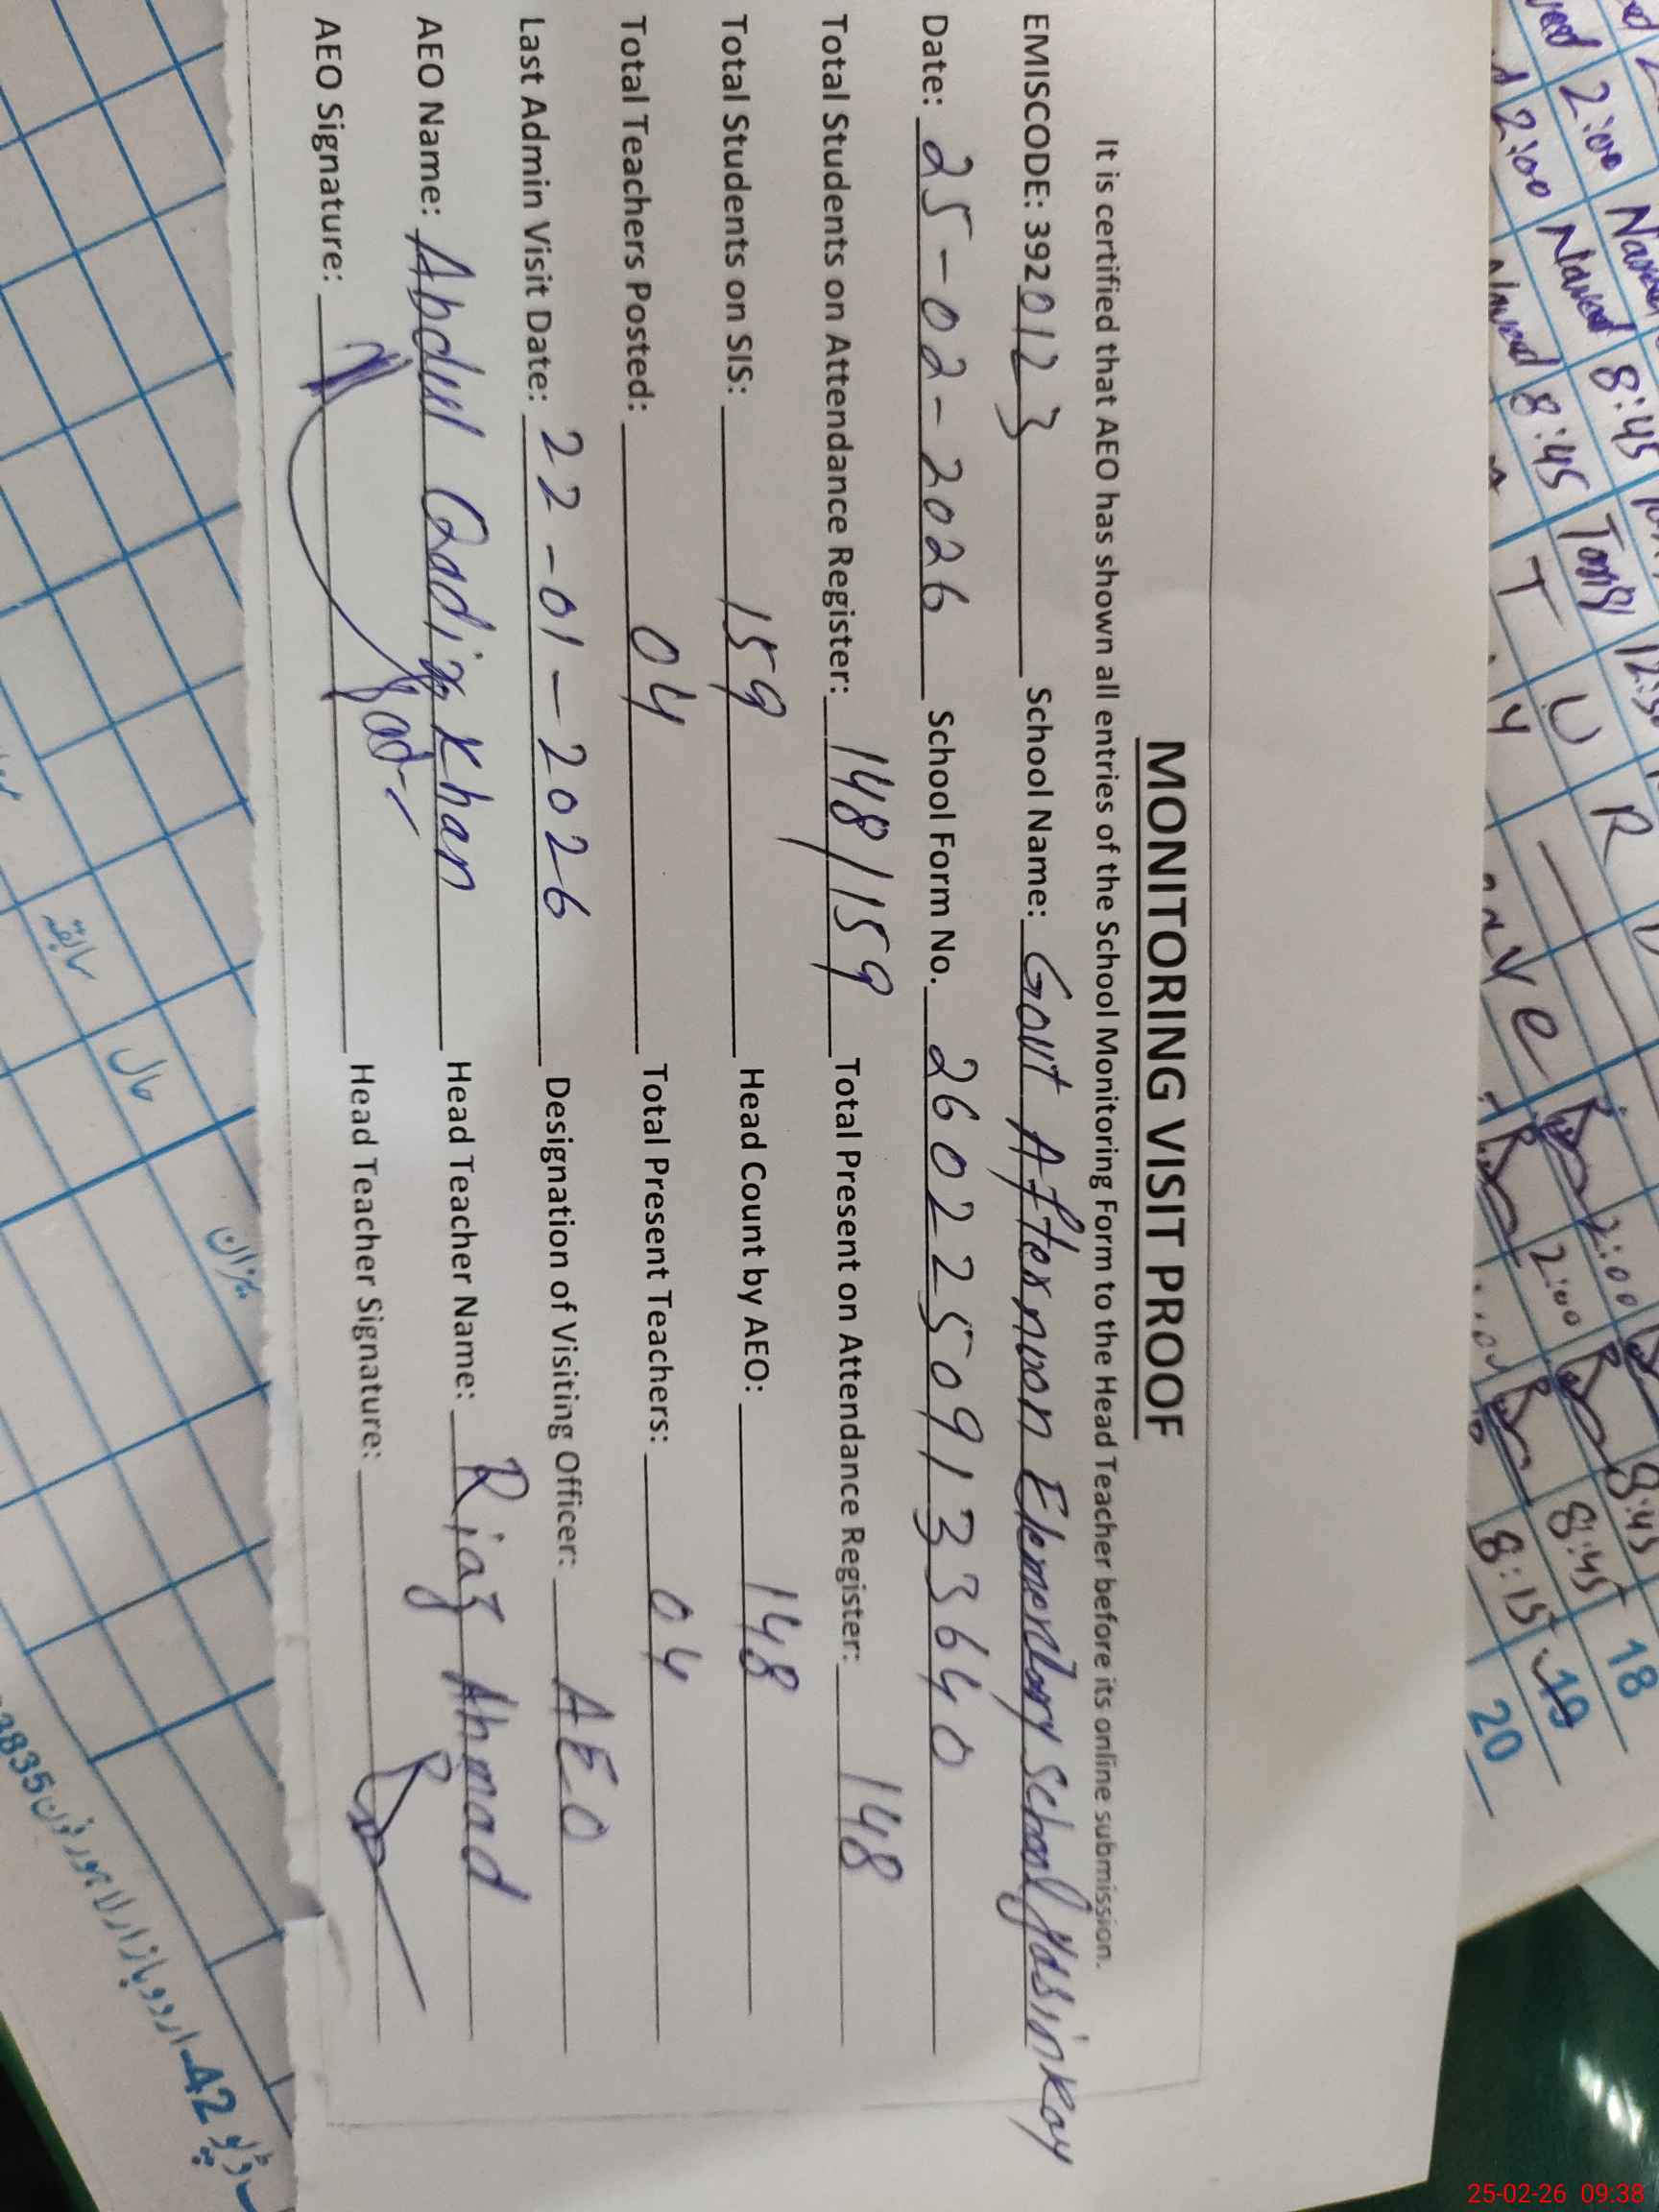 MONITORING VISIT PROOF
It is certified that AEO has shown all entries of the School Monitoring Form to the Head Teacher before its online submission.
EMISCODE: 3920123 School Name: Govt Afternoon Elementary School Yasinkay
Date: 25-02-2026 School Form No. 26022509133640
Total Students on Attendance Register: 148/159 Total Present on Attendance Register: 148
Total Students on SIS: 159 Head Count by AEO: 148
Total Teachers Posted: 04 Total Present Teachers: 04
Last Admin Visit Date: 22-01-2026 Designation of Visiting Officer: AEO
AEO Name: Abdul Qadir Khan Head Teacher Name: Riaz Ahmad
AEO Signature: Head Teacher Signature:
2:00 8:45 8:45 18
2:00 8:45 2:00 8:45 19
8:15 20
T U R
سابقہ
حال
میزان
42-اردو بازار لاہور فون
25-02-26 09:38